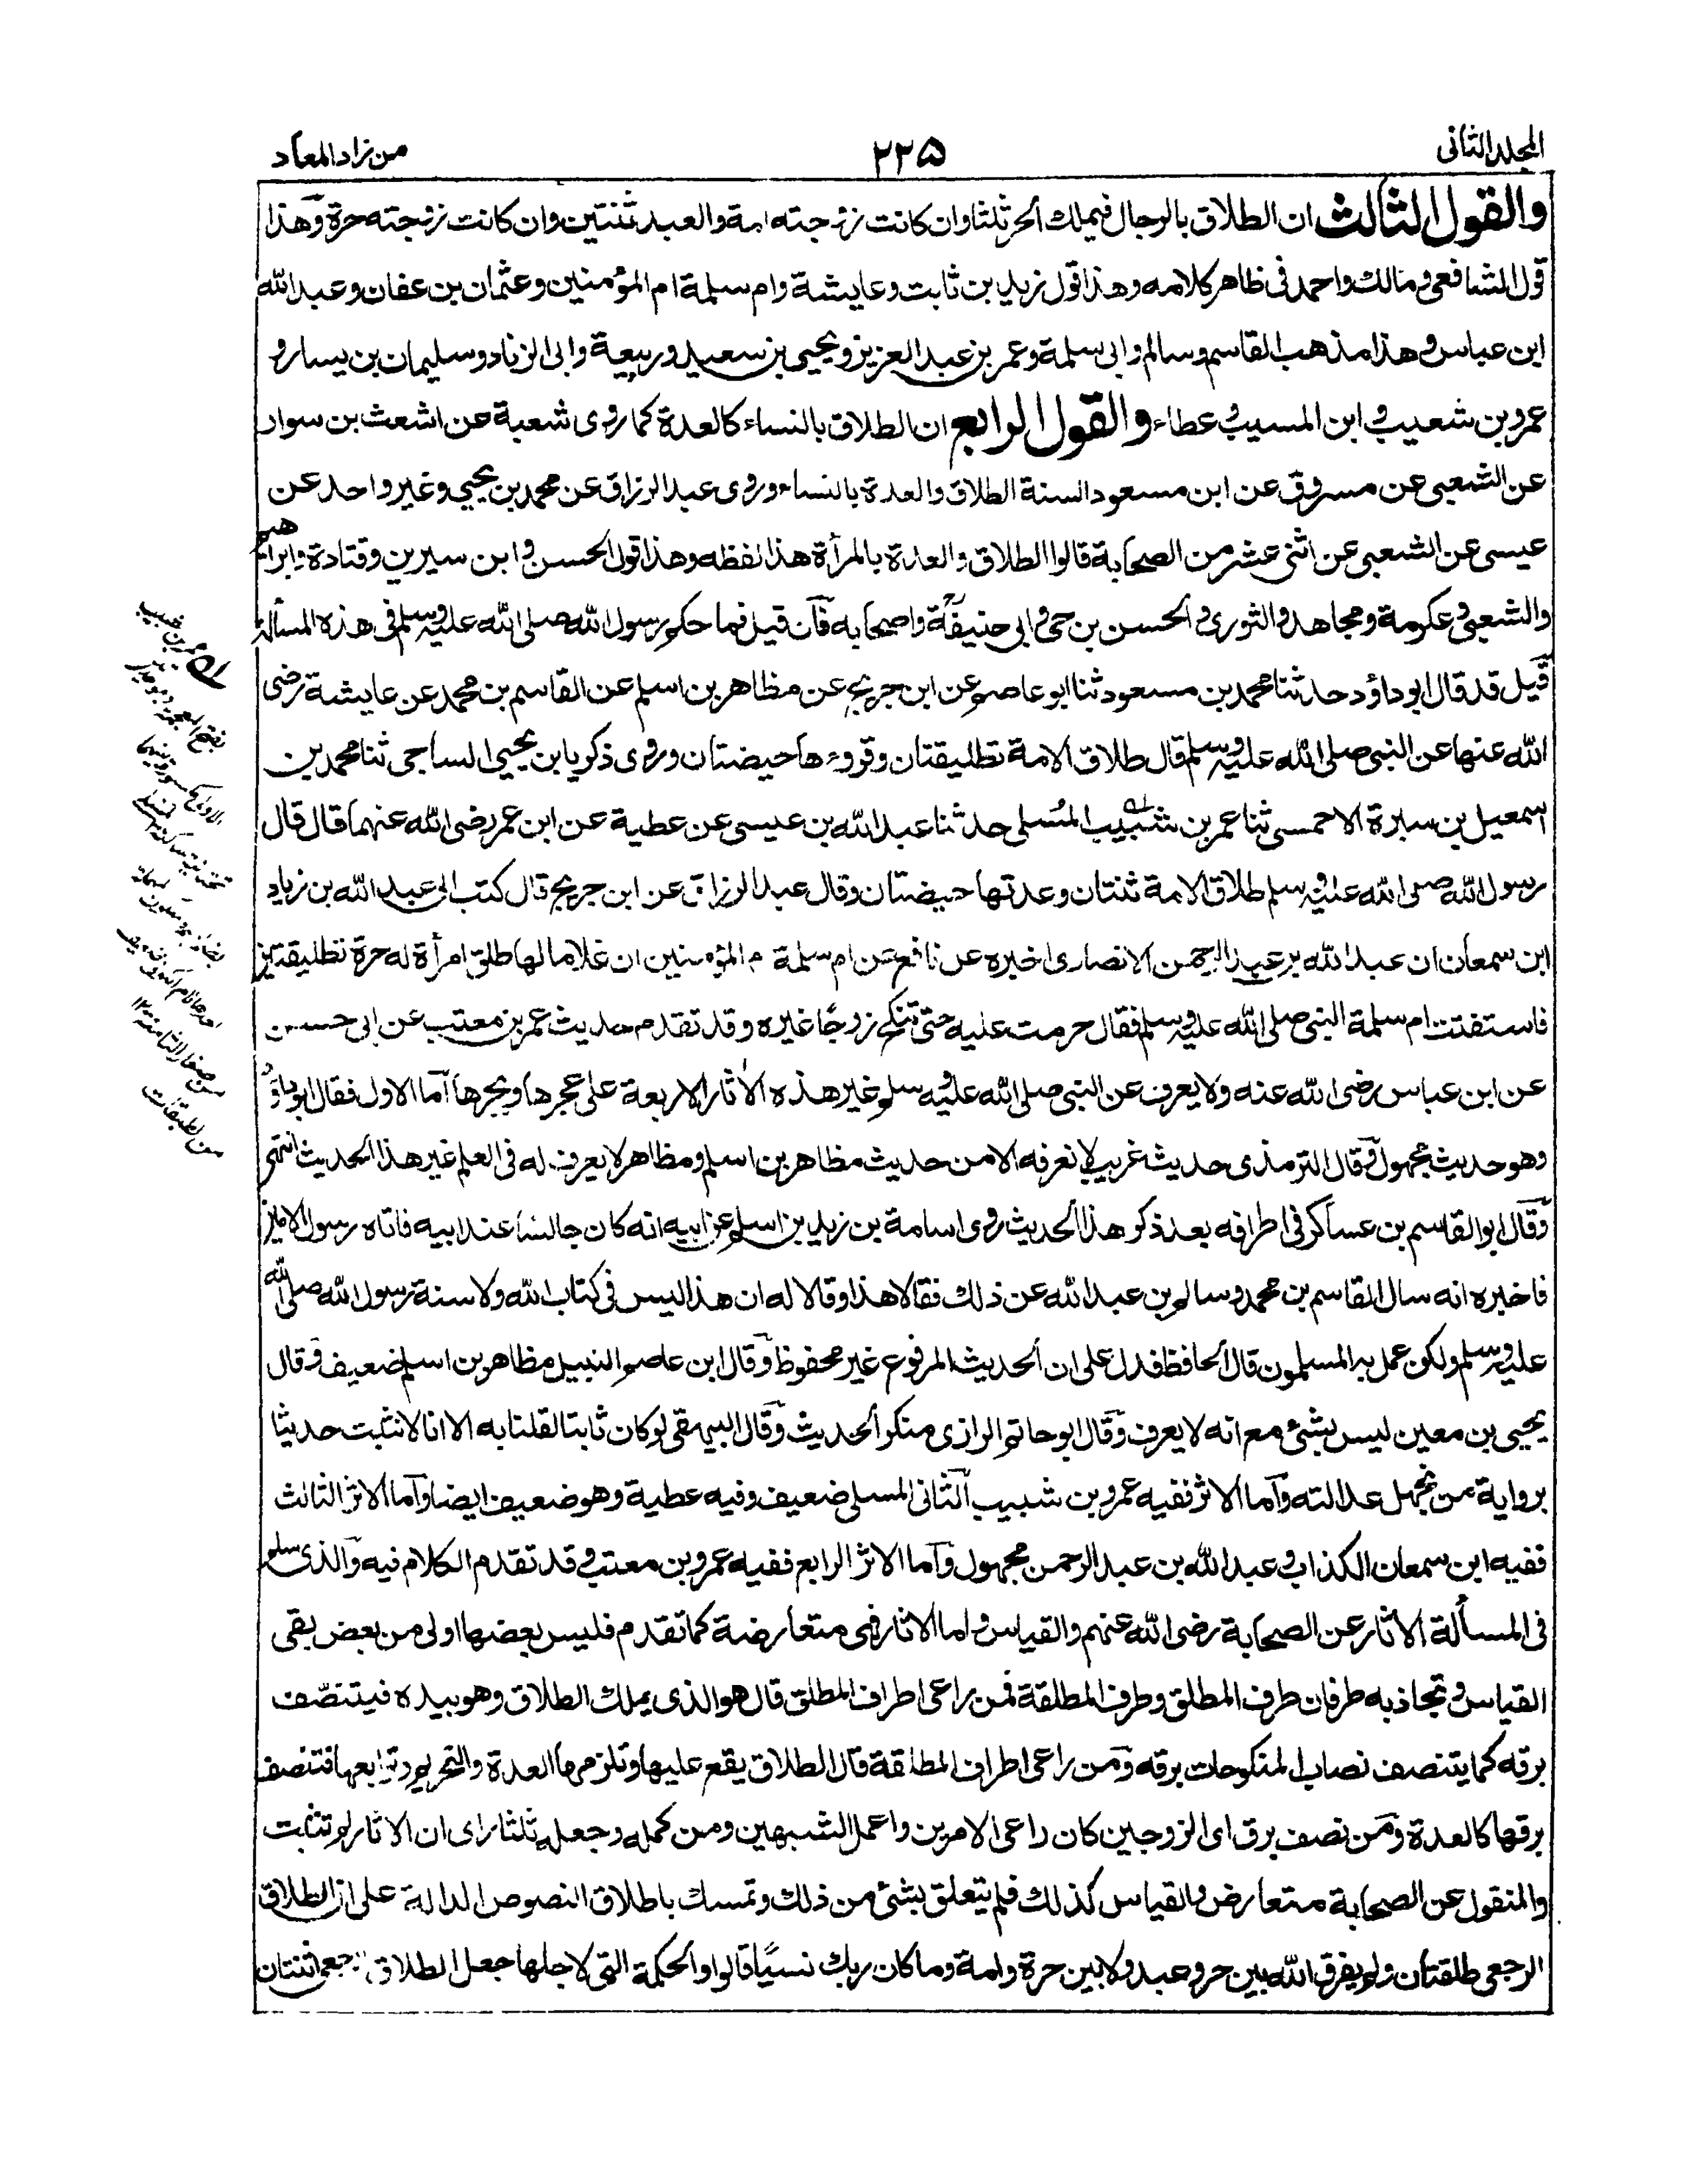 المجلد الثانى
٢٢٥
من زاد المعاد
والقول الثالث ان الطلاق بالرجال فيملك الحر ثلثا وان كانت زوجته امة والعبد ثنتين وان كانت زوجته حرة وهذا
قول الشافعى ومالك واحمد فى ظاهر كلامه وهذا قول زيد بن ثابت وعايشة وام سلمة ام المؤمنين وعثمان بن عفان وعبد الله
ابن عباس وهذا مذهب القاسم وسالم وابى سلمة وعمر بن عبد العزيز ويحيى بن سعيد وربيعة وابى الزناد وسليمان بن يسار و
عمرو بن شعيب و ابن المسيب و عطاء والقول الرابع ان الطلاق بالنساء كالعدة كما روى شعبة عن اشعث بن سوار
عن الشعبى عن مسروق عن ابن مسعود السنة الطلاق والعدة بالنساء وروى عبد الرزاق عن محمد بن يحيى وغير واحد عن
عيسى عن الشعبى عن اثنى عشر من الصحابة قالوا الطلاق والعدة بالمرأة هذا لفظه وهذا قول الحسن و ابن سيرين وقتادة وابراهيم
والشعبى وعكرمة ومجاهد والثورى والحسن بن حى وابى حنيفة واصحابه فان قيل فما حكم رسول الله صلى الله عليه وسلم فى هذه المسألة
قيل قد قال ابو داؤد حدثنا محمد بن مسعود ثنا ابو عاصم عن ابن جريج عن مظاهر بن اسلم عن القاسم بن محمد عن عايشة رضى
الله عنها عن النبى صلى الله عليه وسلم قال طلاق الامة تطليقتان وقروءها حيضتان وروى ذكريا بن يحيى الساجى ثنا محمد بن
اسمعيل بن سبرة الاحمسى ثنا عمر بن شبيب المُسلى حدثنا عبد الله بن عيسى عن عطية عن ابن عمر رضى الله عنهما قال قال
رسول الله صلى الله عليه وسلم طلاق الامة ثنتان وعدتها حيضتان وقال عبد الرزاق عن ابن جريج قال كتب الى عبد الله بن زياد
ابن سمعان ان عبد الله بن عبد الرحمن الانصارى اخبره عن نافع عن ام سلمة م المؤمنين ان غلاما لها طلق امرأة له حرة تطليقتين
فاستفتت ام سلمة النبى صلى الله عليه وسلم فقال حرمت عليه حتى تنكح زوجًا غيره وقد تقدم حديث عمر بن معتب عن ابى حسن
عن ابن عباس رضى الله عنه ولا يعرف عن النبى صلى الله عليه وسلم غير هذه الأثار الاربعة على عجرها وبجرها اما الاول فقال ابو داؤد
وهو حديث مجهول وقال الترمذى حديث غريب لا نعرفه الا من حديث مظاهر بن اسلم ومظاهر لا يعرف له فى العلم غير هذا الحديث انتهى
وقال ابو القاسم بن عساكر فى اطرافه بعد ذكر هذا الحديث روى اسامة بن زيد بن اسلم عن ابيه انه كان جالسا عند ابيه فاتاه رسول الامير
فاخبره انه سال القاسم بن محمد وسالم بن عبد الله عن ذلك فقالا هذا وقالا له ان هذا ليس فى كتاب الله ولا سنة رسول الله صلى الله
عليه وسلم ولكن عمل به المسلمون قال الحافظ فدل على ان الحديث المرفوع غير محفوظ وقال ابن عاصم النبيل مظاهر بن اسلم ضعيف وقال
يحيى بن معين ليس بشئ مع انه لا يعرف وقال ابو حاتم الرازى منكر الحديث وقال البيهقى لو كان ثابتا لقلنا به الا انا لا نثبت حديثا
برواية من نجهل عدالته واما الاثر ففيه عمرو بن شبيب الثانى المسلى ضعيف وفيه عطية وهو ضعيف ايضا واما الاثر الثالث
ففيه ابن سمعان الكذاب وعبد الله بن عبد الرحمن مجهول واما الاثر الرابع ففيه عمرو بن معتب وقد تقدم الكلام فيه والذى سلم
فى المسألة الاثار عن الصحابة رضى الله عنهم والقياس واما الاثار فهى متعارضة كما تقدم فليس بعضها اولى من بعض بقى
القياس وتجاذبه طرفان طرف المطلق وطرف المطلقة فمن راعى اطراف المطلق قال هو الذى يملك الطلاق وهو بيده فيتنصّف
برقه كما يتنصف نصاب المنكوحات برقه ومن راعى اطراف المطلقة قال الطلاق يقع عليها وتلزمها العدة والتحريم وتوابعها فتنصف
برقها كالعدة ومن نصف برق اى الزوجين كان راعى الامرين واعمل الشبهين ومن كمله وجعله ثلثا راى ان الاثار لم تثبت
والمنقول عن الصحابة متعارض والقياس كذلك فلم يتعلق بشئ من ذلك وتمسك باطلاق النصوص الدالة على ان الطلاق
الرجعى طلقتان ولم يفرق الله بين حر وعبد ولا بين حرة وامة وما كان ربك نسيًا قالوا والحكمة التى لاجلها جعل الطلاق الرجعى اثنتان